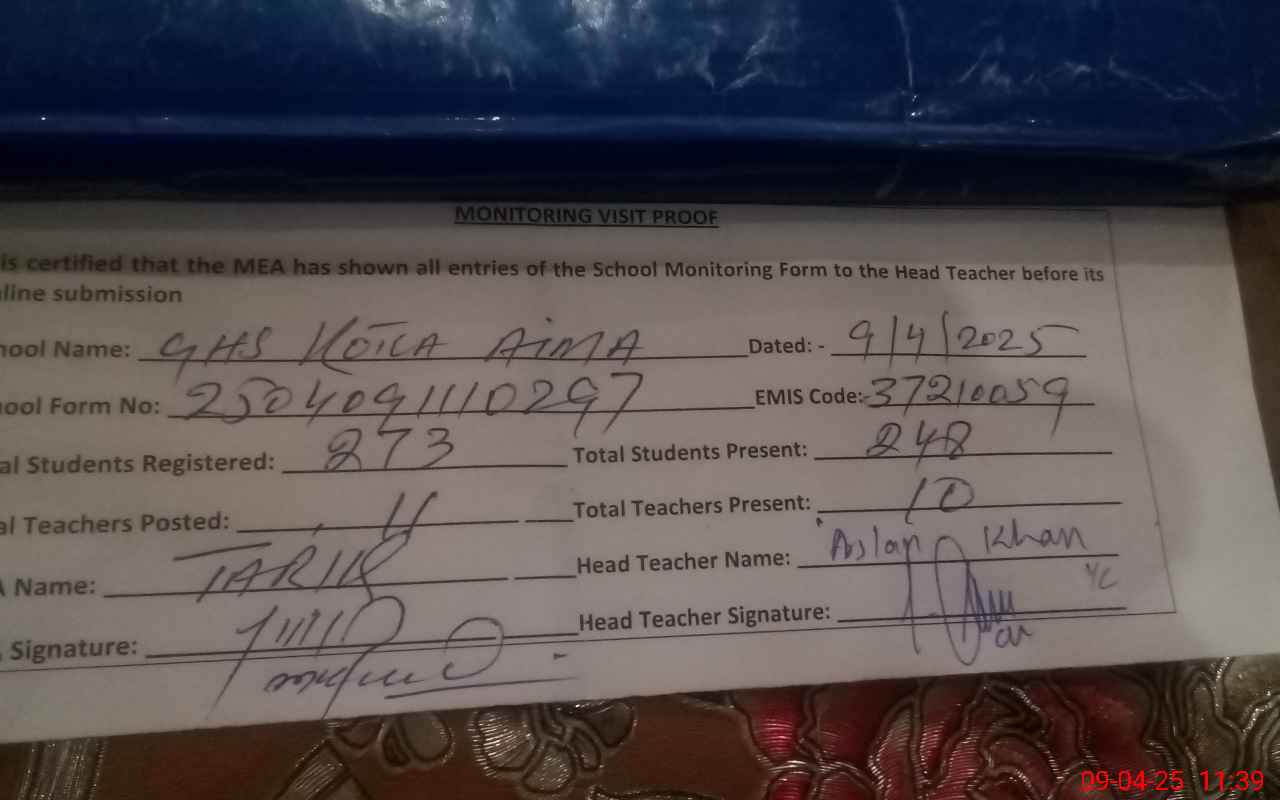 MONITORING VISIT PROOF
is certified that the MEA has shown all entries of the School Monitoring Form to the Head Teacher before its
line submission
hool Name: GHS KOTLA AIMA Dated: - 9/4/2025
ool Form No: 2504091110297 EMIS Code:- 37210059
al Students Registered: 273 Total Students Present: 248
al Teachers Posted: 11 Total Teachers Present: 10
Name: TARIK Head Teacher Name: Arslan Khan
Signature: Head Teacher Signature:
09-04-25 11:39